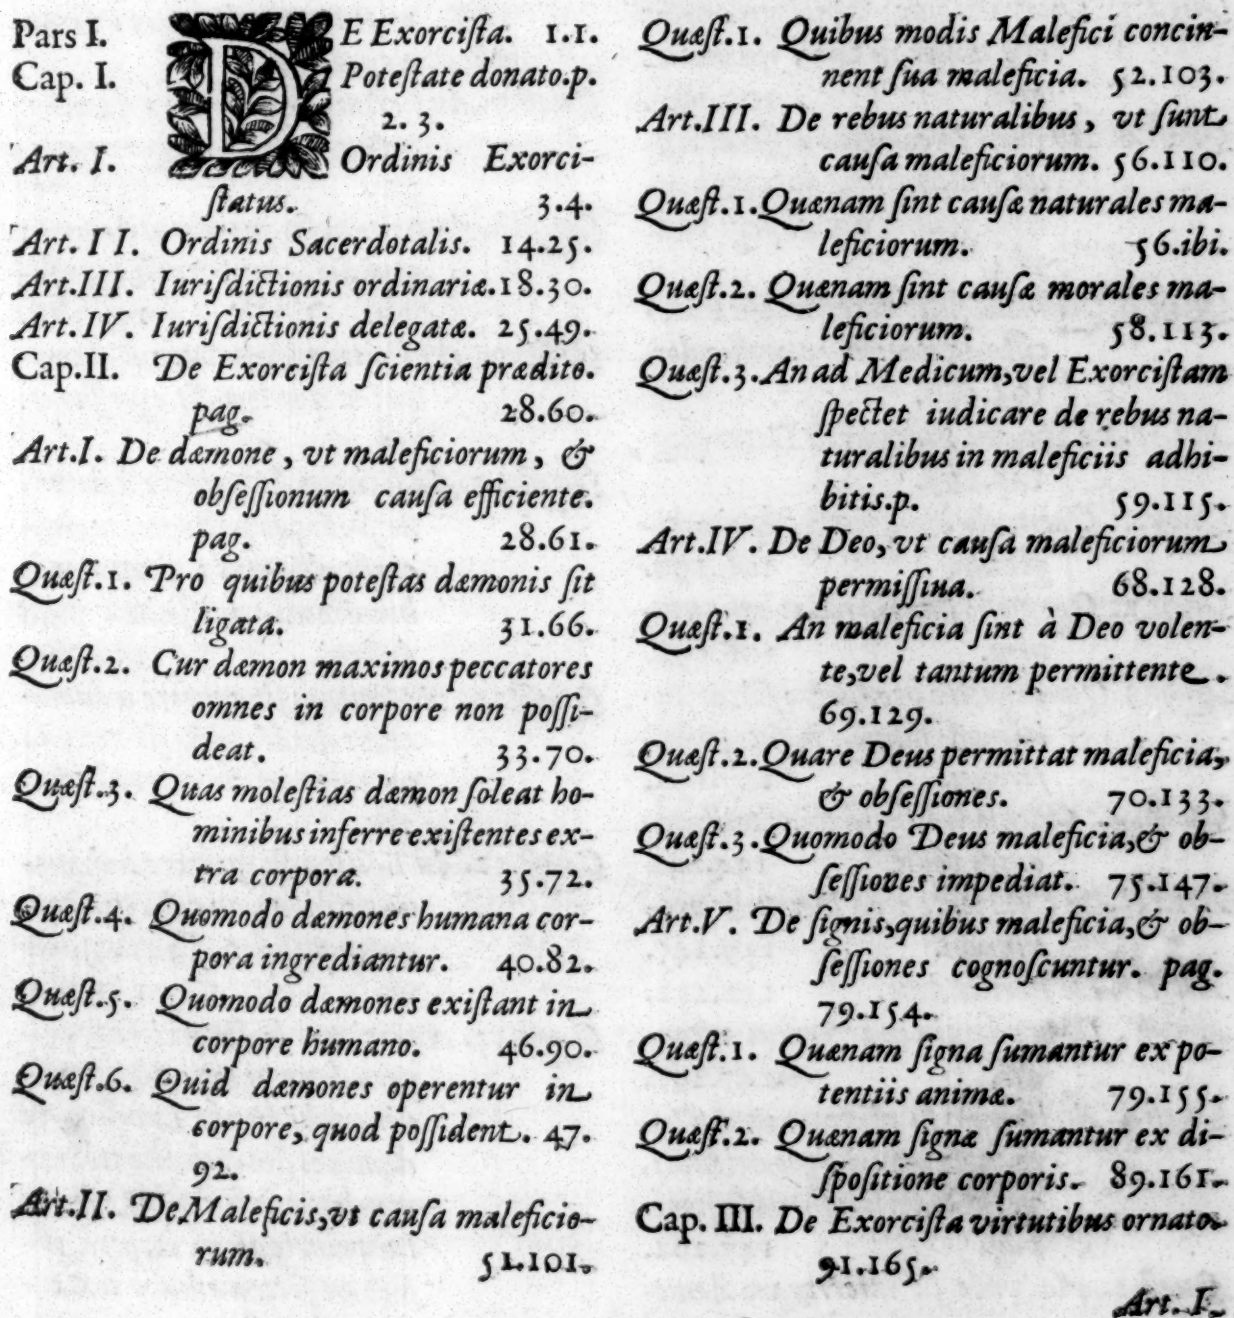 Pars I. DE Exorciſta. 1.1.
Cap. I. Poteſtate donato.p.
2. 3.
Art. I. Ordinis Exorci-
ſtatus. 3.4.
Art. II. Ordinis Sacerdotalis. 14.25.
Art.III. Iuriſdictionis ordinariæ.18.30.
Art.IV. Iuriſdictionis delegatæ. 25.49.
Cap.II. De Exorciſta ſcientia prædito.
pag. 28.60.
Art.I. De dæmone, vt maleficiorum, &
obſeſſionum cauſa efficiente.
pag. 28.61.
Quæſt.1. Pro quibus poteſtas dæmonis ſit
ligata. 31.66.
Quæſt.2. Cur dæmon maximos peccatores
omnes in corpore non poſſi-
deat. 33.70.
Quæſt.3. Quas moleſtias dæmon ſoleat ho-
minibus inferre exiſtentes ex-
tra corpora. 35.72.
Quæſt.4. Quomodo dæmones humana cor-
pora ingrediantur. 40.82.
Quæſt.5. Quomodo dæmones exiſtant in
corpore humano. 46.90.
Quæſt.6. Quid dæmones operentur in
corpore, quod poſſident. 47.
92.
Art.II. De Maleficis,vt cauſa maleficio-
rum. 51.101.
Quæſt.1. Quibus modis Malefici concin-
nent ſua maleficia. 52.103.
Art.III. De rebus naturalibus, vt ſunt
cauſa maleficiorum. 56.110.
Quæſt.1.Quænam ſint cauſæ naturales ma-
leficiorum. 56.ibi.
Quæſt.2. Quænam ſint cauſæ morales ma-
leficiorum. 58.113.
Quæſt.3.An ad Medicum,vel Exorciſtam
ſpectet iudicare de rebus na-
turalibus in maleficiis adhi-
bitis.p. 59.115.
Art.IV. De Deo, vt cauſa maleficiorum
permiſſiua. 68.128.
Quæſt.1. An maleficia ſint à Deo volen-
te,vel tantum permittente.
69.129.
Quæſt.2.Quare Deus permittat maleficia,
& obſeſſiones. 70.133.
Quæſt.3.Quomodo Deus maleficia,& ob-
ſeſſiones impediat. 75.147.
Art.V. De ſignis,quibus maleficia,& ob-
ſeſſiones cognoſcuntur. pag.
79.154.
Quæſt.1. Quænam ſigna ſumantur ex po-
tentiis animæ. 79.155.
Quæſt.2. Quænam ſigna ſumantur ex di-
ſpoſitione corporis. 89.161.
Cap. III. De Exorciſta virtutibus ornato.
91.165.
Art. I.